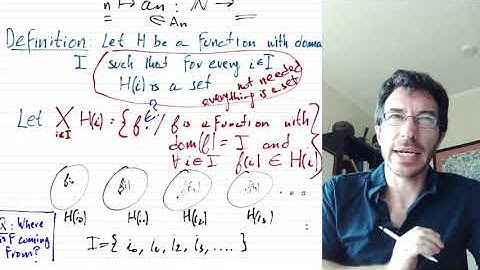 n ↦ a_n : ℕ →
∈ A_n
Definition: Let H be a function with doma
I such that for every i∈I
H(i) is a set
not needed
everything is a set
Let X_{i∈I} H(i) = { f ∈ ? / f is a function with
dom(f) = I and
∀ i∈I f(i) ∈ H(i) }
H(i₀) H(i₁) H(i₂) H(i₃) ...
Q: Where
is f coming
from?
I = { i₀, i₁, i₂, i₃, .... }